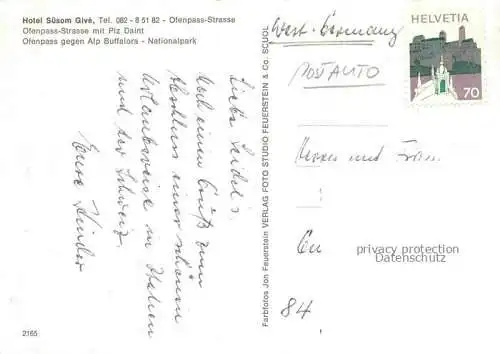 Hotel Süsom Givé, Tel. 082 - 8 51 82 - Ofenpass-Strasse
Ofenpass-Strasse mit Piz Daint
Ofenpass gegen Alp Buffalors - Nationalpark
Liebe Seidel's.
Noch einen Gruß zum
Abschluss einer schönen
Urlaubsreise in Italien
und der Schweiz
Eure Kinder
2165
Farbfotos Jon Feuerstein VERLAG FOTO STUDIO FEUERSTEIN & Co. SCUOL
West-Germany
POSTAUTO
HELVETIA
70
Herrn und Frau
privacy protection
Datenschutz
84